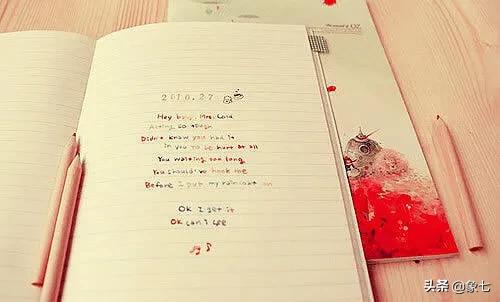 2010.27
Hey boy, Mrs. Cold
Acting so tough
Didn't know you had it
in you to be hurt at all
You waiting too long
You should've hook me
Before I put my raincoat on
OK I get it
OK can I see
OZ
头条 @象七